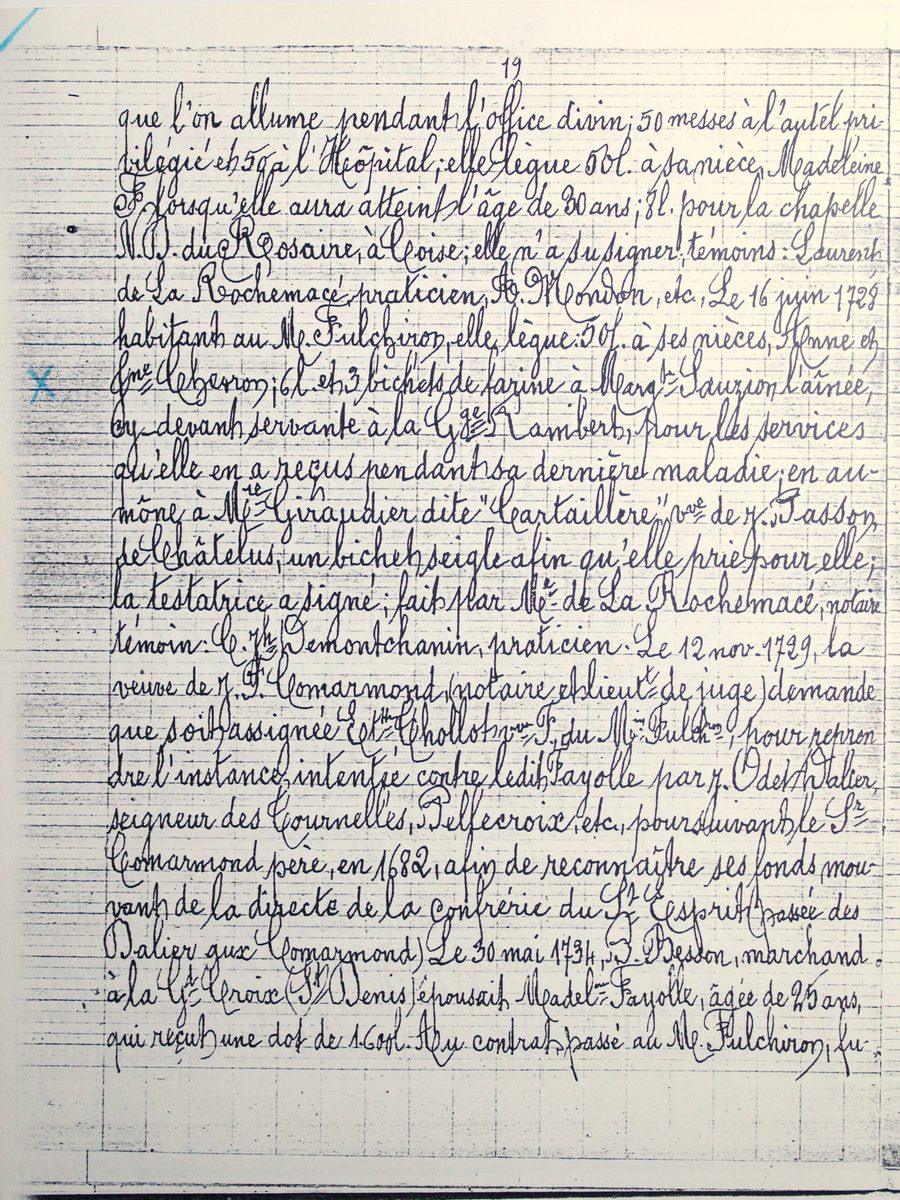 19
que l'on allume pendant l'office divin; 50 messes à l'autel pri-
vilégié et 50 à l'Hôpital; elle lègue 50l. à sa nièce, Madeleine
F. lorsqu'elle aura atteint l'âge de 30 ans; 8l. pour la chapelle
N.D. du Rosaire, à Coise; elle n'a su signer, témoins: Laurent
de La Rochemacé, praticien, A. Mondon, etc., Le 16 juin 1728
habitant au M. Fulchiron, elle lègue: 50l. à ses nièces, Anne et
Chevron; 6l. et 3 bichets de farine à Marg^te Sauzion l'aînée,
cy-devant servante à la G^ge Rambert, pour les services
qu'elle en a reçus pendant sa dernière maladie; en au-
mône à M^ie Giraudier dite "Cartaillère", v^ve de J. Passon,
de Châtelus, un bichet seigle afin qu'elle prie pour elle;
la testatrice a signé; fait par M^e de La Rochemacé, notaire
témoin: C. J^h Demontchanin, praticien. Le 12 nov. 1729, la
veuve de J. F. Comarmond, (notaire et lieut^t de juge) demande
que soit assignée Et^tte Chollot v^ve F., du M^in Fulch^ron, pour repren
dre l'instance, intentée contre ledit Fayolle par J. Odet Dalier,
seigneur des Tournelles, Bellecroix, etc., poursuivant le S^r
Comarmond père, en 1682, afin de reconnaître ses fonds mou-
vant de la directe de la confrérie du S^t Esprit (passée des
Dalier aux Comarmond) Le 30 mai 1734, B. Besson, marchand
à la G^d Croix (S^t Denis) épousait Madel^ne Fayolle, âgée de 25 ans,
qui reçut une dot de 1.600l. Au contrat, passé au M. Fulchiron, fu-